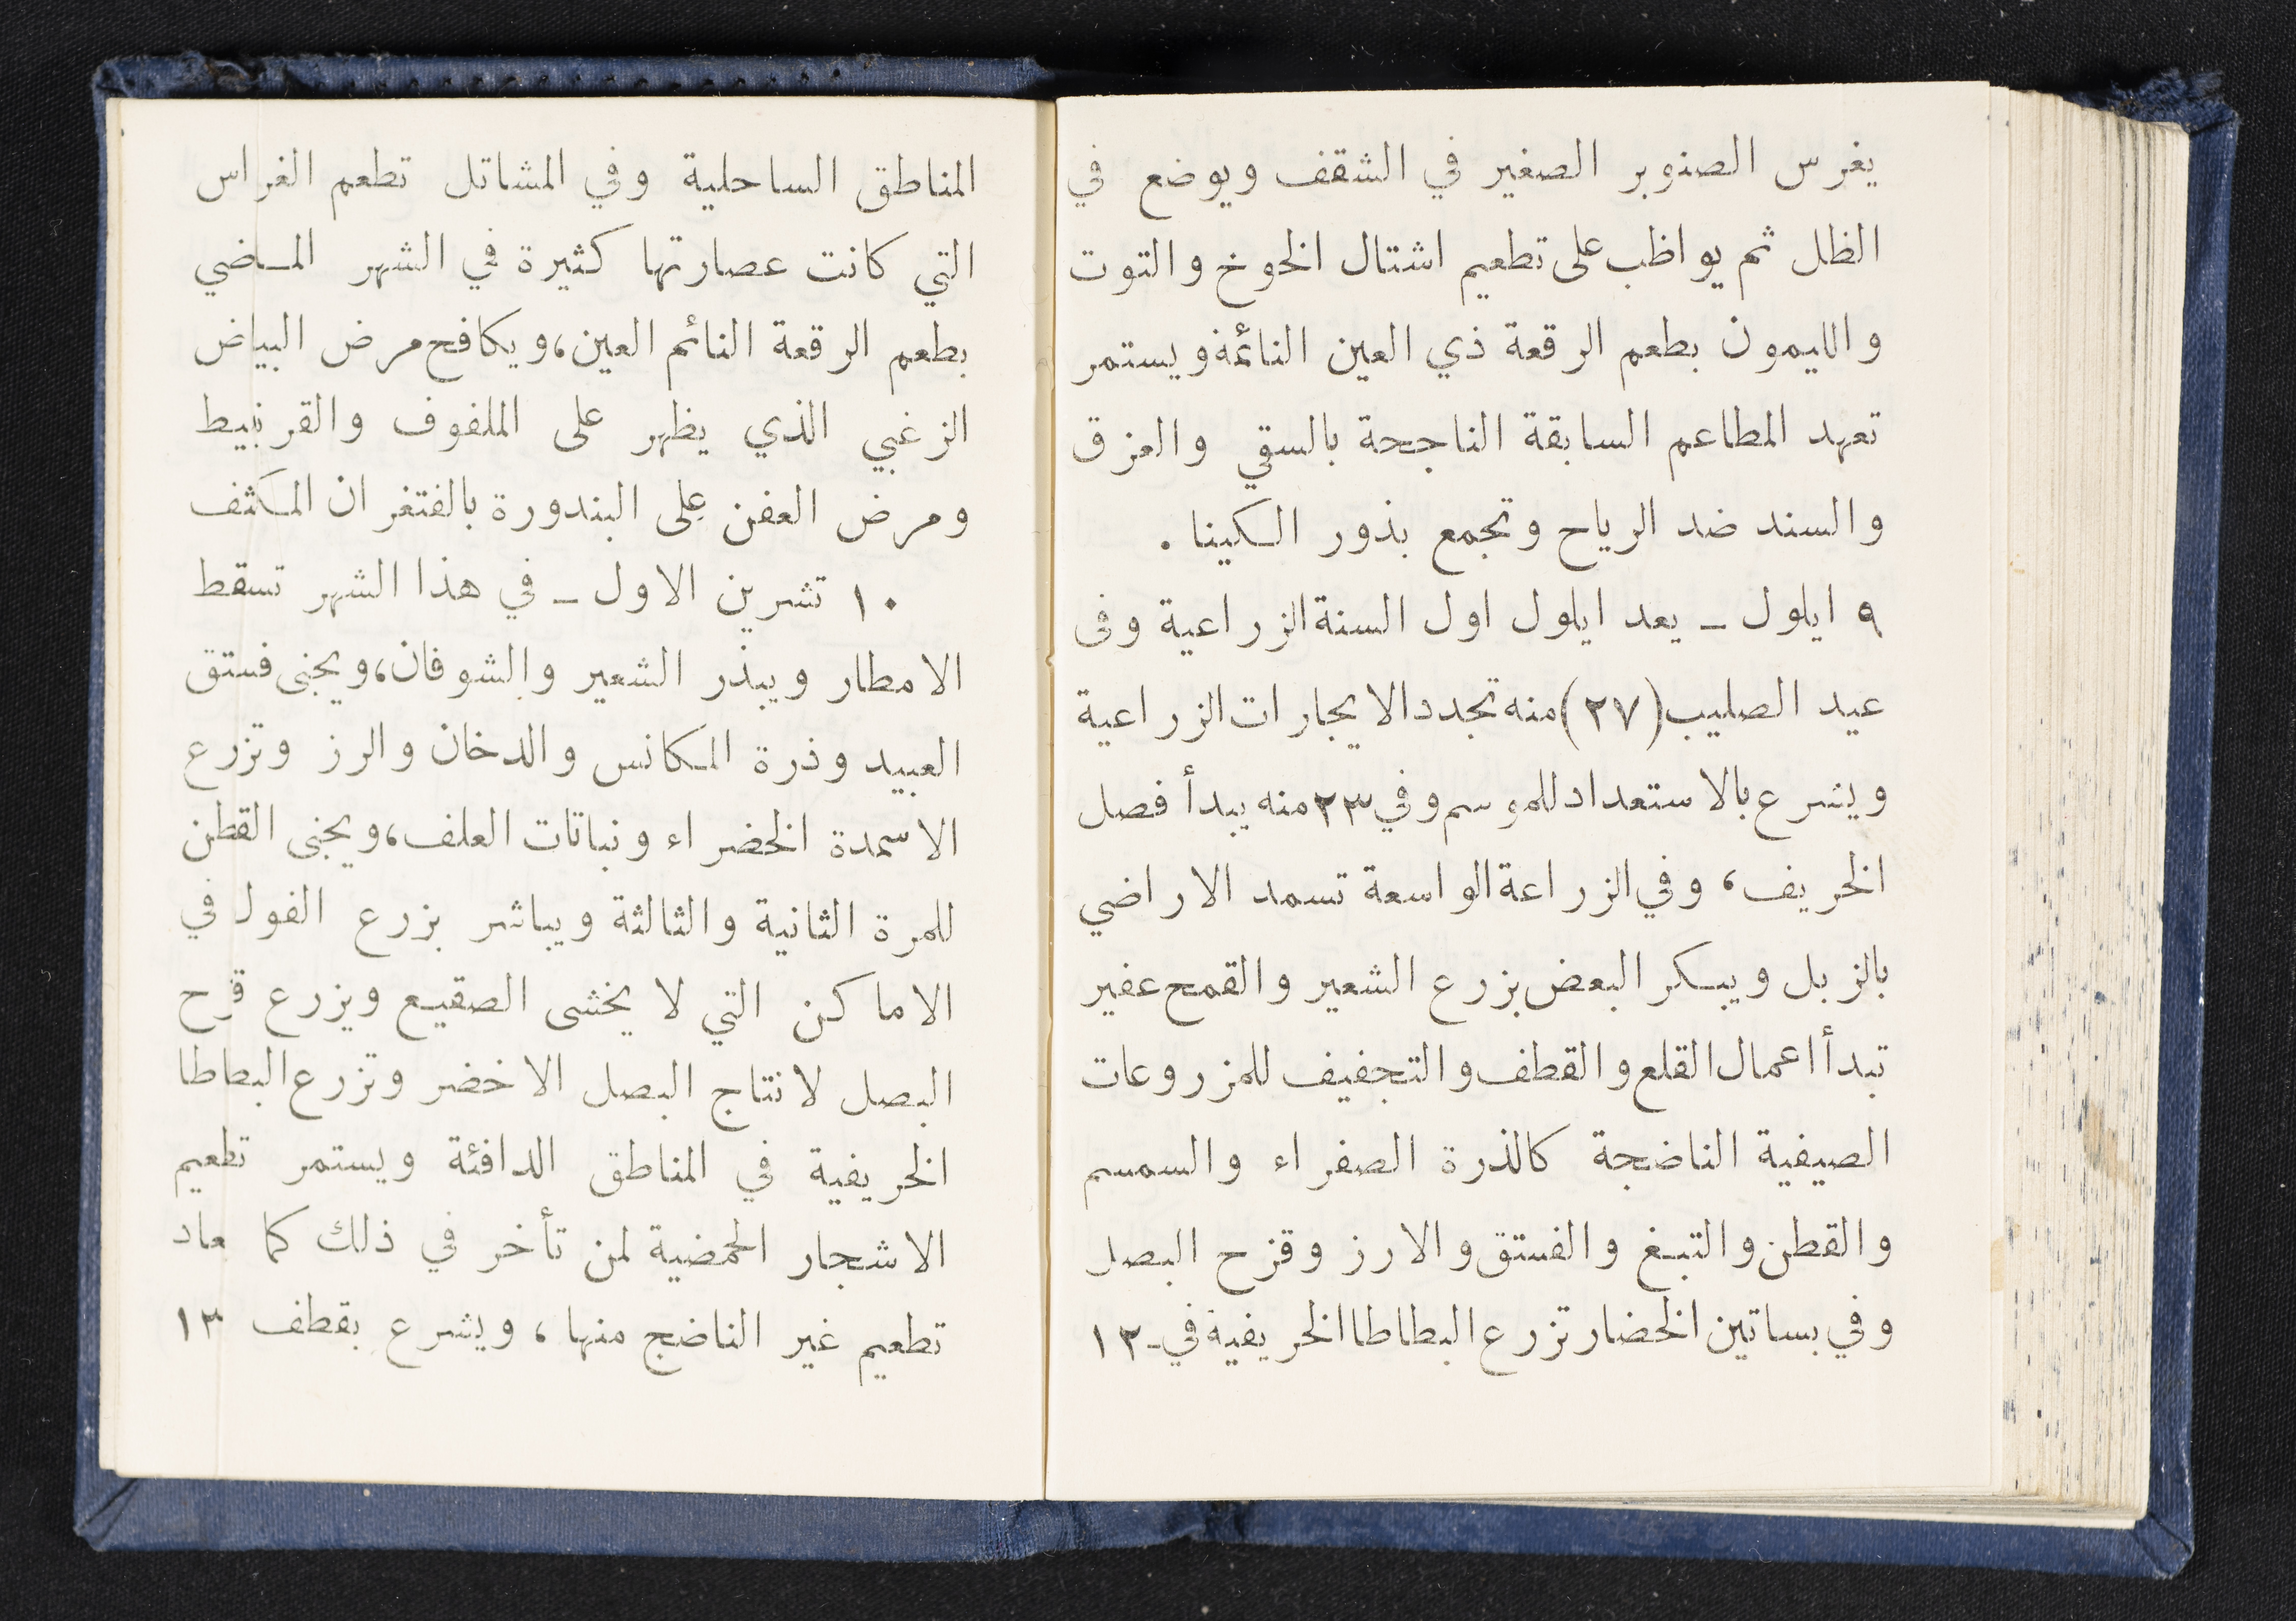 يغرس الصنوبر الصغير في الشقف ويوضع في
الظل ثم يواظب على تطعيم اشتال الخوخ والتوت
والليمون بطعم الرقعة ذي العين النائمة ويستمر
تعهد المطاعم السابقة الناجحة بالسقي والعزق
والسند ضد الرياح وتجمع بذور الكينا .
٩ ايلول ــ يعد ايلول اول السنة الزراعية وفى
عيد الصليب (٢٧) منه تجدد الايجارات الزراعية
ويشرع بالاستعداد للموسم وفي ٢٣ منه يبدأ فصل
الخريف، وفي الزراعة الواسعة تسمد الاراضي
بالزبل ويبكر البعض بزرع الشعير والقمح عفير
تبدأ اعمال القلع والقطف والتجفيف للمزروعات
الصيفية الناضجة كالذرة الصفراء والسمسم
والقطن والتبغ والفستق والارز وقزح البصل
وفي بساتين الخضار تزرع البطاطا الخريفية في ــ ١٣
المناطق الساحلية وفي المشاتل تطعم الغراس
التي كانت عصارتها كثيرة في الشهر الماضي
بطعم الرقعة النائم العين، ويكافح مرض البياض
الزغبي الذي يظهر على الملفوف والقرنبيط
ومرض العفن على البندورة بالفتغران المكثف
١٠ تشرين الاول ــ في هذا الشهر تسقط
الامطار ويبذر الشعير والشوفان، ويجنى فستق
العبيد وذرة المكانس والدخان والرز وتزرع
الاسمدة الخضراء ونباتات العلف، ويجنى القطن
للمرة الثانية والثالثة ويباشر بزرع الفول في
الاماكن التي لا يخشى الصقيع ويزرع قزح
البصل لانتاج البصل الاخضر وتزرع البطاطا
الخريفية في المناطق الدافئة ويستمر تطعيم
الاشجار الحمضية لمن تأخر في ذلك كما يعاد
تطعيم غير الناضج منها، ويشرع بقطف ١٣